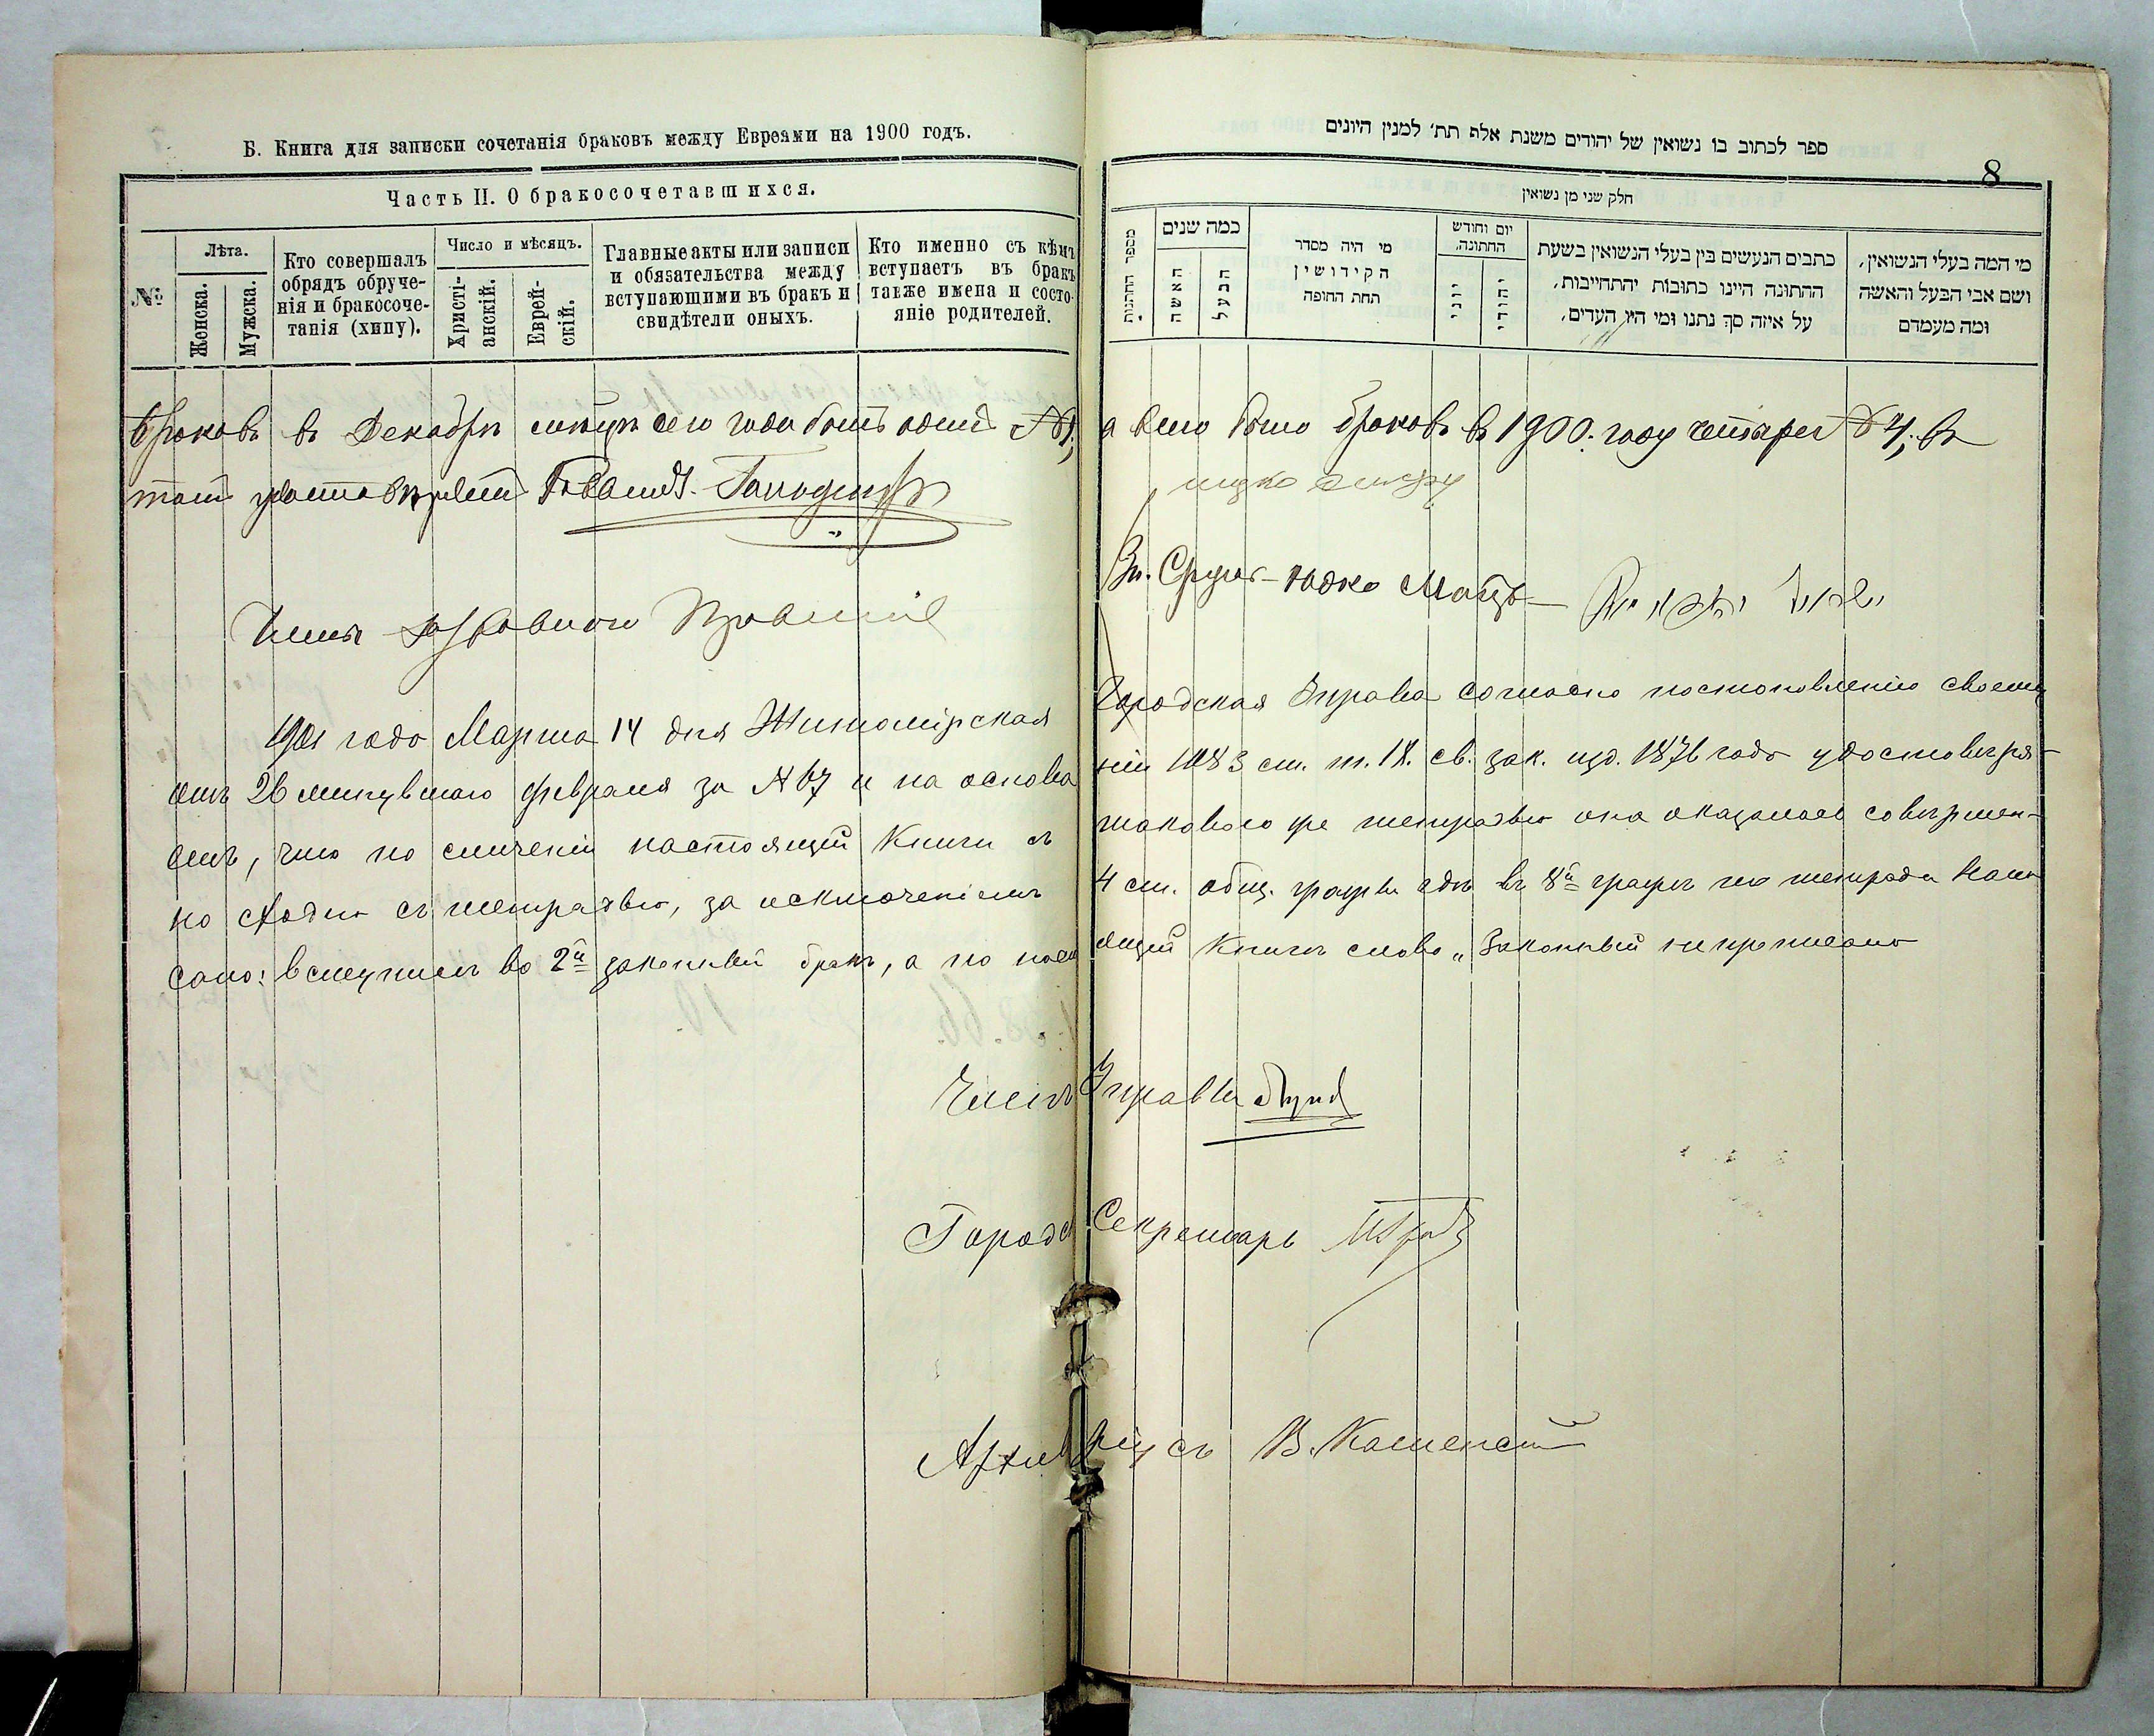 Б. Книга для записки сочетанія браковъ между Евреями на 1900 годъ.
Часть II. О бракосочетавшихся.
№
Лѣта.
Женска.
Мужска.
Кто совершалъ
обрядъ обруче-
нія и бракосоче-
танія (хипу).
Число и мѣсяцъ.
Христі-
анскій.
Еврей-
скій.
Главные акты или записи
и обязательства между
вступающими въ бракъ и
свидѣтели оныхъ.
Кто именно съ кѣмъ
вступаетъ въ бракъ
также имена и состо-
яніе родителей.
ספר לכתוב בו נשואין של יהודים משנת אלפ תת׳ למנין היונים
8
חלק שני מן נשואין
מספר החתונות
כמה שנים
האשה
הבעל
מי היה מסדר
הקידושין
תחת החופה
יום וחודש
החתונה.
יוני
יהודי
כתבים הנעשים בין בעלי הנשואין בשעת
ההתונה היינו כתובות יהתחייבות,
על איזה סך נתנו ומי היו העדים,
מי המה בעלי הנשואין,
ושם אבי הבעל והאשה
ומה מעמדם
Браковъ въ Декабрѣ сего года былъ одинъ №1, а всего было браковъ въ 1900. году четыре №4, въ
томъ
Членъ Правленія
Юдко Мацъ
1901 года Марта 14 дня Житомірская Городская Управа согласно постановленію своему
отъ 26 минувшаго февраля за №67 и на основа ніи 1083 ст. т. IX. св. зак. изд. 1876 года удостовѣря-
етъ, что по сличеніи настоящей Книги съ таковою же тетрадью она оказалась совершен-
но сходна съ тетрадью, за исключеніемъ 4 ст. общ. графы гдѣ въ 8й графѣ по тетради напи
сано: вступилъ во 2й законный бракъ, а по наст оящей Книгѣ слово „Законный не прописано
Членъ Управы
Городс Секретарь
Архиваріусъ В. Каменскій